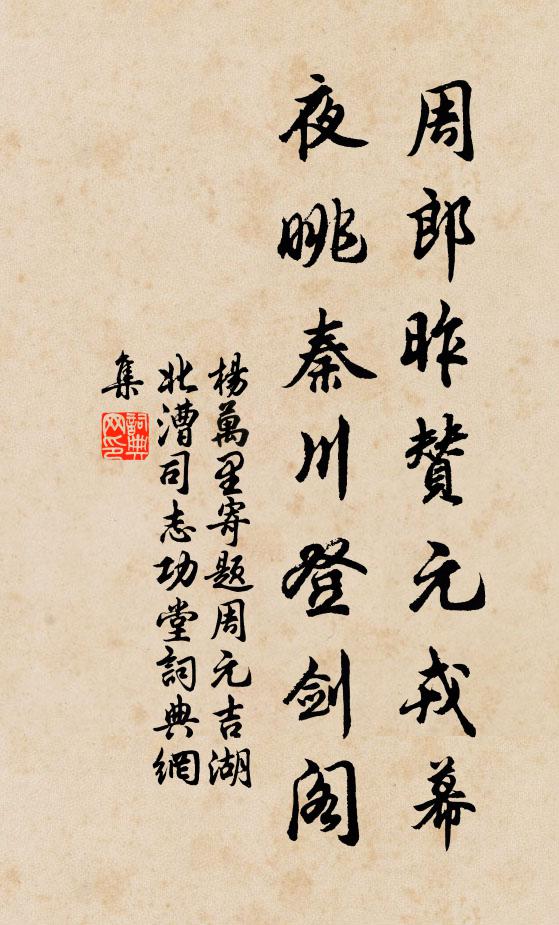 周郎昨贊元戎幕
夜眺秦川登劍閣
楊萬里寄題周元吉湖
北漕司志功堂詞典網
集
詞典
网印